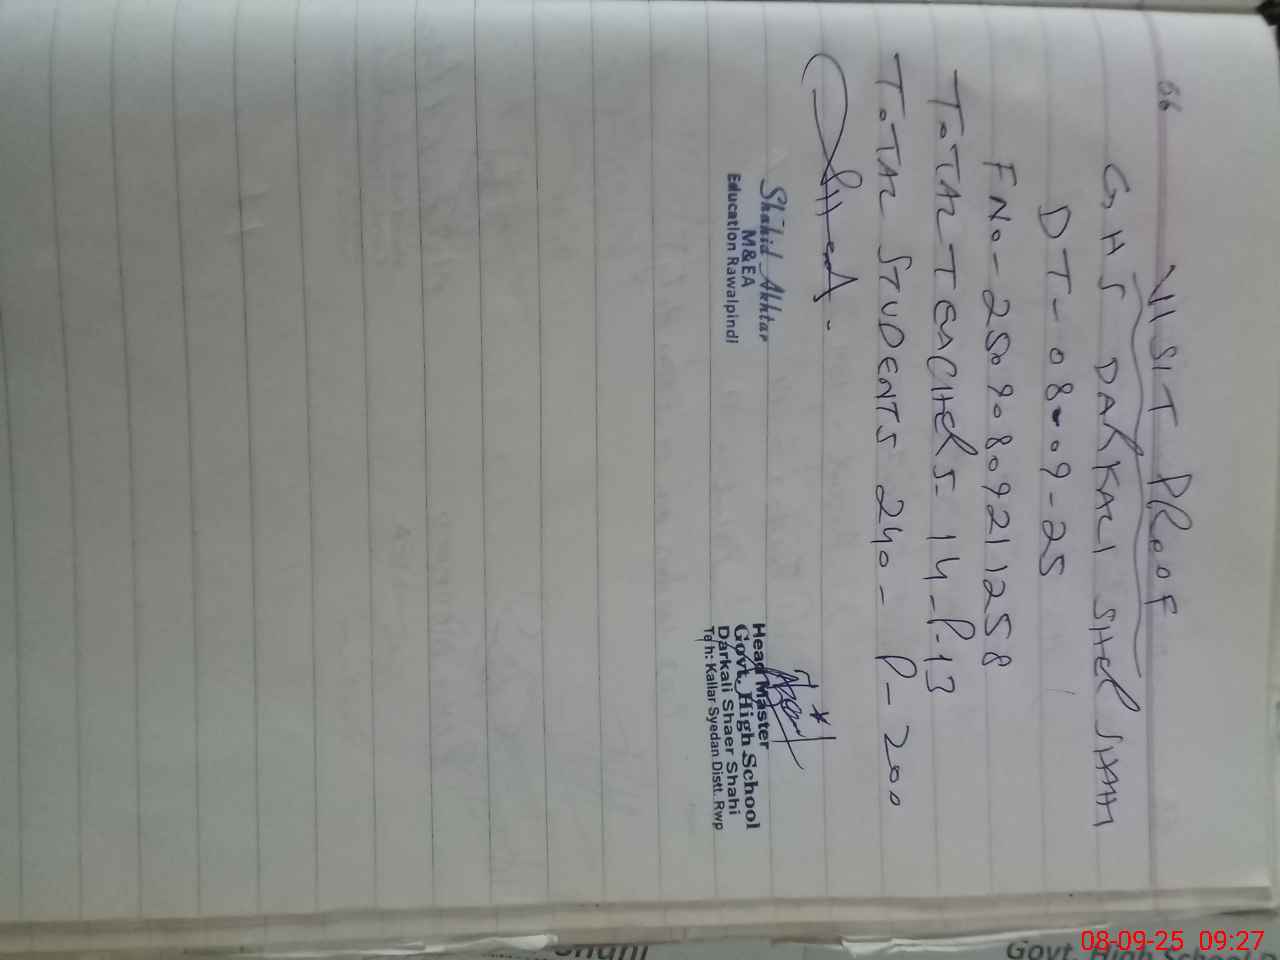 66
VISIT PROOF
GHS DARKALI SHER SHAHI
DT-08-09-25
FNO-25090809211258
TOTAL TEACHERS-14-P-13
TOTAL STUDENTS 240-P-200
Shahid Akhtar
M&EA
Education Rawalpindi
Head Master
Govt. High School
Darkali Shaer Shahi
Teh: Kallar Syedan Distt. Rwp
Govt. High School
08-09-25 09:27